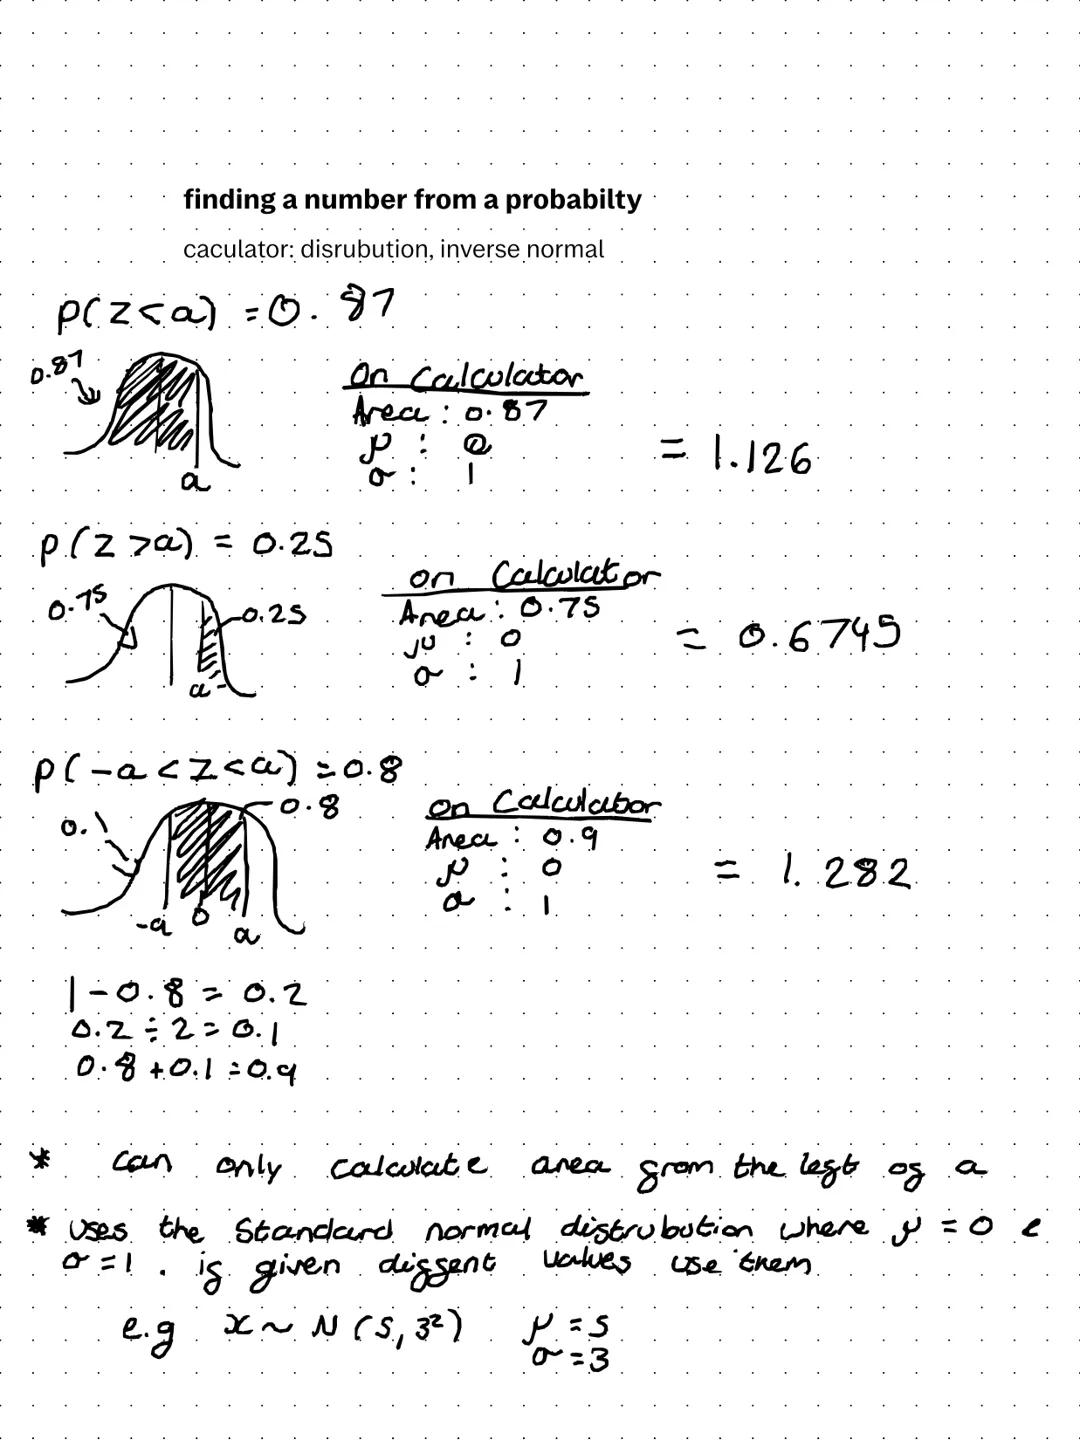 finding a number from a probabilty
caculator: disrubution, inverse normal
P(Z<a) = 0.87
0.87
a
On Calculator
Area : 0.87
μ : 0
σ : 1
= 1.126
P(Z>a) = 0.25
0.75
0.25
a
On Calculator
Area : 0.75
μ : 0
σ : 1
= 0.6745
P(-a<Z<a) = 0.8
0.1
0.8
-a 0 a
On Calculator
Area : 0.9
μ : 0
σ : 1
= 1.282
1-0.8 = 0.2
0.2 ÷ 2 = 0.1
0.8 + 0.1 = 0.9
* can only calculate area from the left of a
* uses the standard normal distrubution where μ = 0 &
σ = 1 . if given diffent values use them
e.g x ~ N (5, 3²) μ = 5
σ = 3